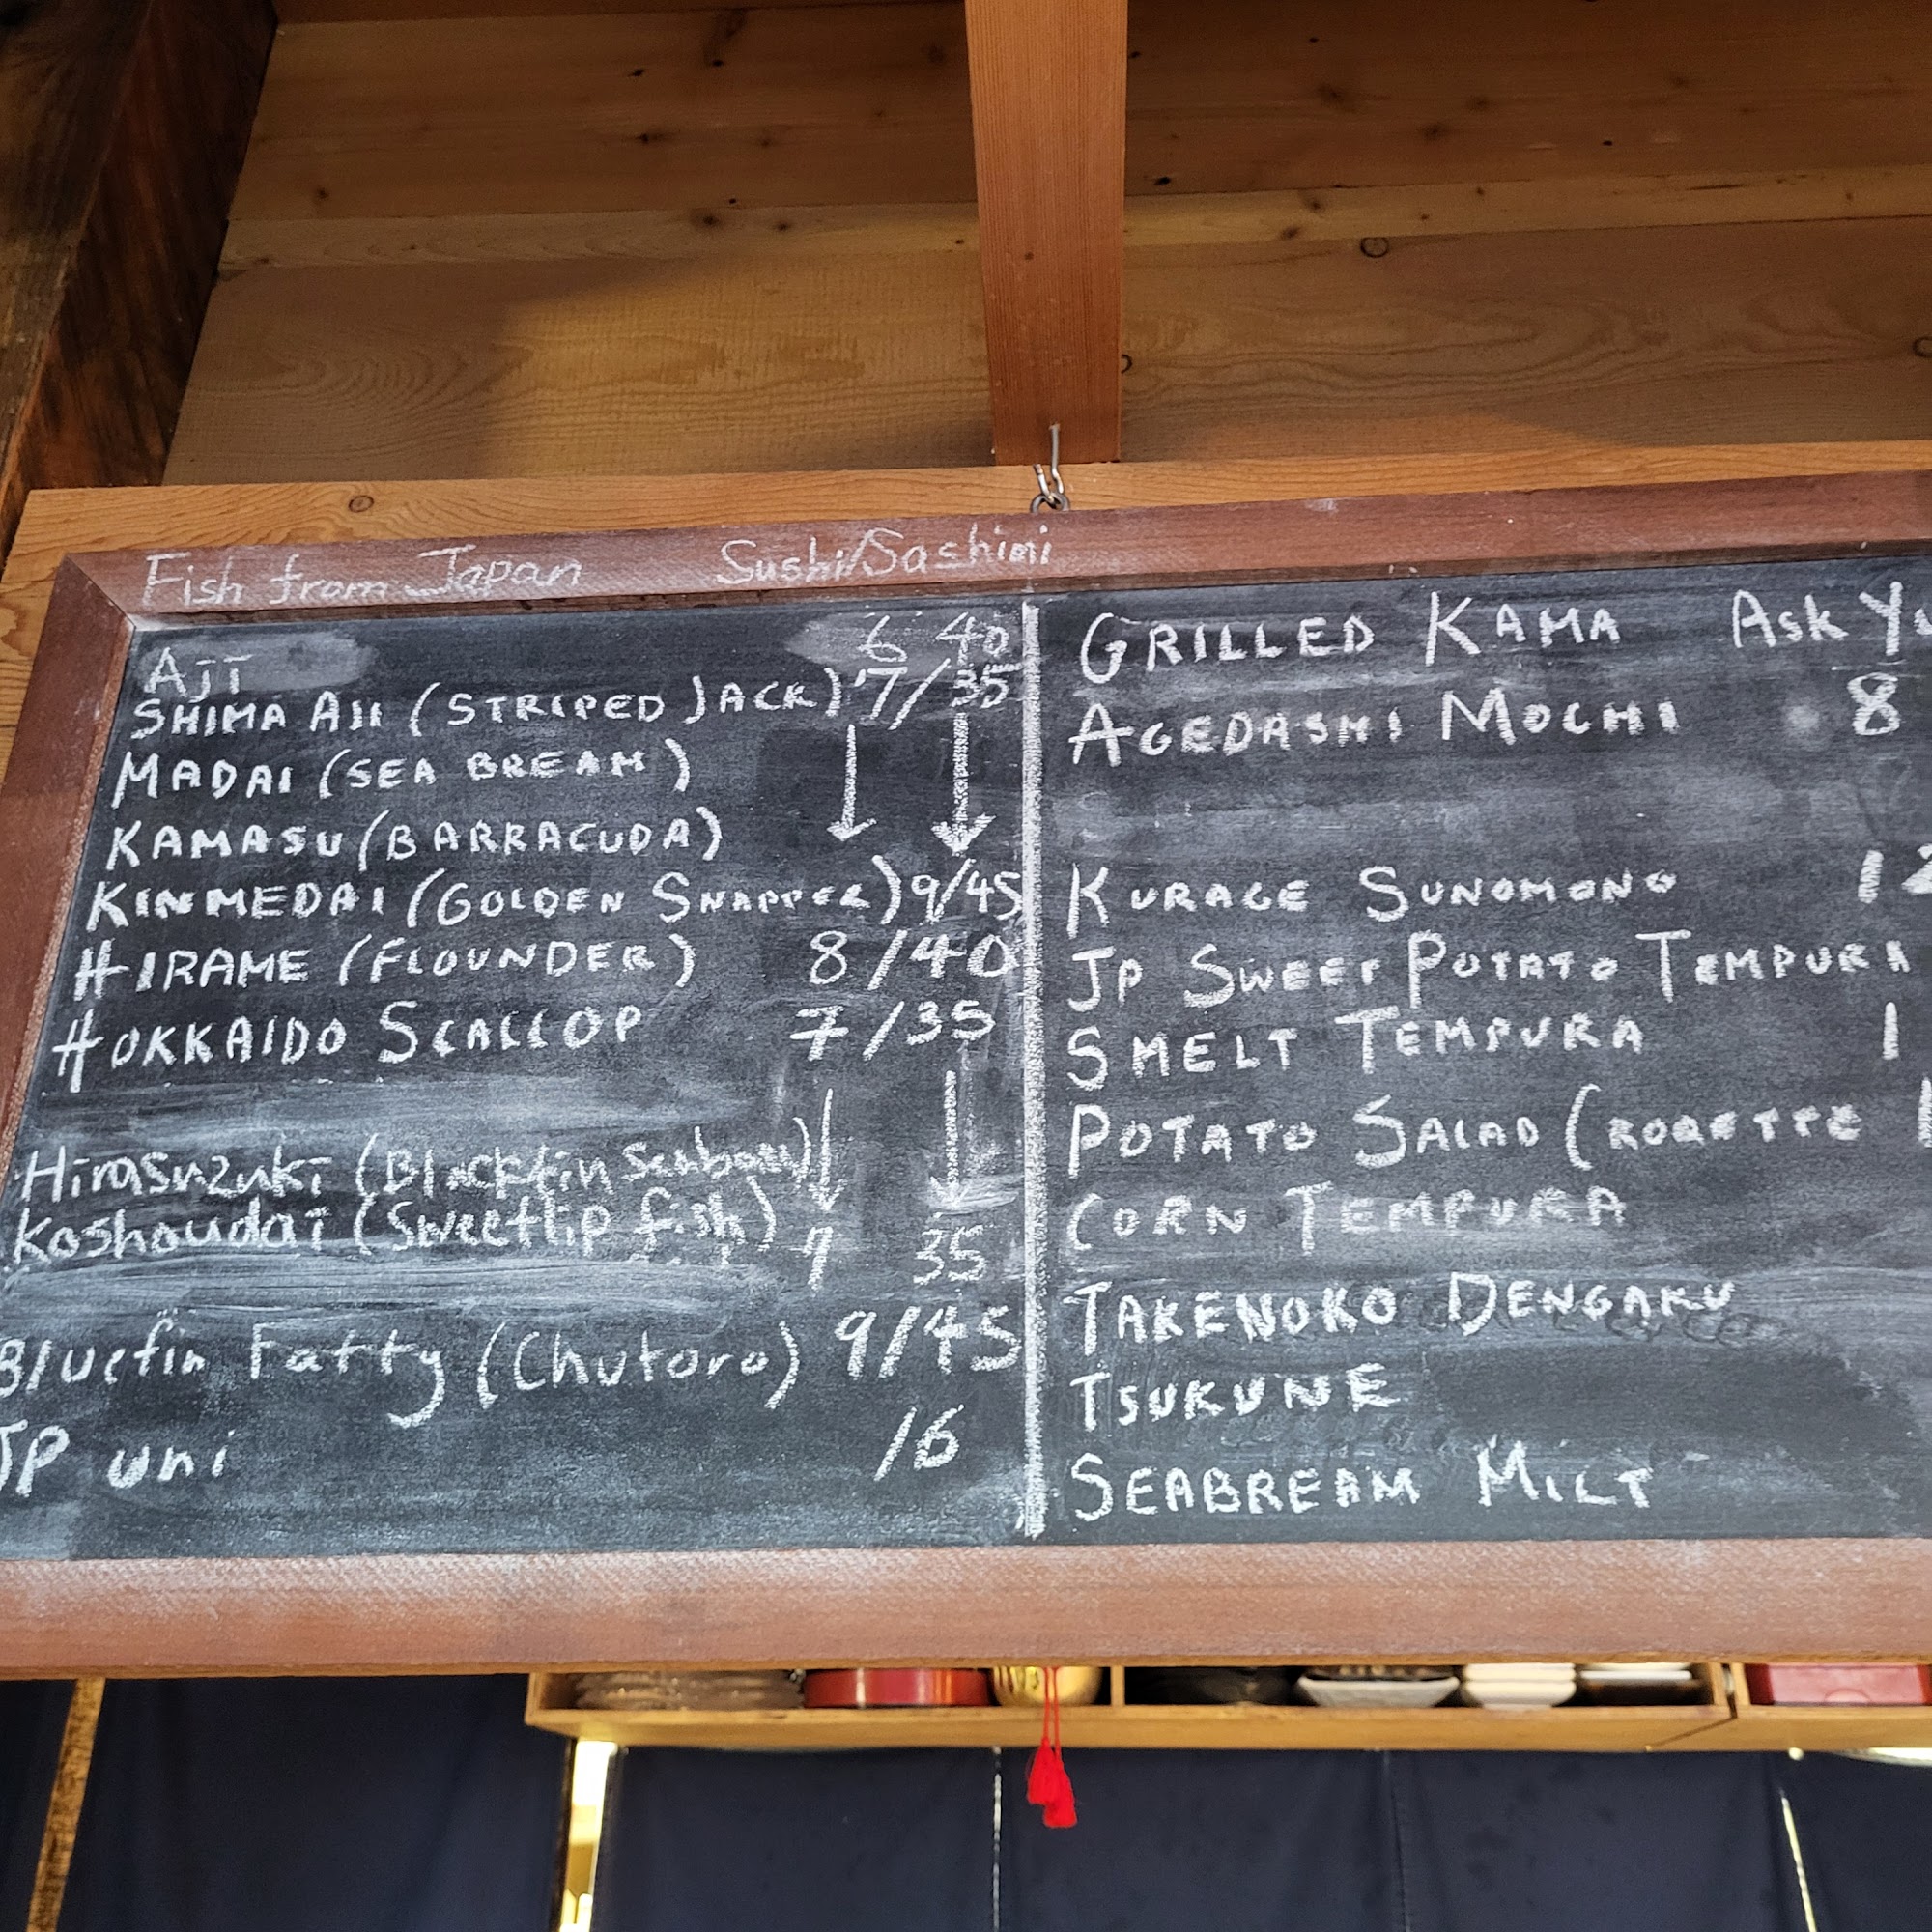 Fish from Japan Sushi/Sashimi
AJI 6 40
SHIMA AJI (STRIPED JACK) 7/35
MADAI (SEA BREAM)
KAMASU (BARRACUDA)
KINMEDAI (GOLDEN SNAPPER) 9/45
HIRAME (FLOUNDER) 8/40
HOKKAIDO SCALLOP 7/35
Hirasuzuki (Blackfin Seabass)
Koshoudai (Sweetlip fish) 7 35
Bluefin Fatty (Chutoro) 9/45
JP uni 16
GRILLED KAMA Ask
AGEDASHI MOCHI 8
KURAGE SUNOMONO 12
JP SWEET POTATO TEMPURA
SMELT TEMPURA 1
POTATO SALAD (
CORN TEMPURA
TAKENOKO DENGAKU
TSUKUNE
SEABREAM MILT